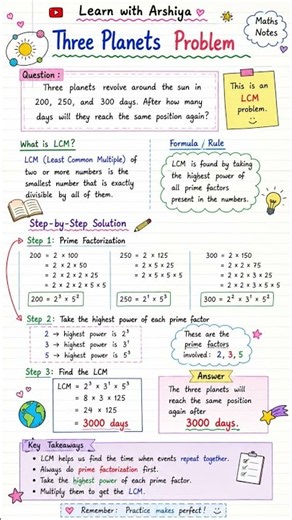 Learn with Arshiya
Maths
Notes
Three Planets Problem
Question :
Three planets revolve around the sun in
200, 250, and 300 days. After how many
days will they reach the same position again?
This is an
LCM
problem.
What is LCM?
LCM (Least Common Multiple) of
two or more numbers is the
smallest number that is exactly
divisible by all of them.
Formula / Rule
LCM is found by taking
the highest power of
all prime factors
present in the numbers.
Step-by-Step Solution
Step 1: Prime Factorization
200 = 2 × 100
= 2 × 2 × 50
= 2 × 2 × 2 × 25
= 2 × 2 × 2 × 5 × 5
200 = 2³ × 5²
250 = 2 × 125
= 2 × 5 × 25
= 2 × 5 × 5 × 5
250 = 2¹ × 5³
300 = 2 × 150
= 2 × 2 × 75
= 2 × 2 × 3 × 25
= 2 × 2 × 3 × 5 × 5
300 = 2² × 3¹ × 5²
Step 2: Take the highest power of each prime factor
2 → highest power is 2³
3 → highest power is 3¹
5 → highest power is 5³
These are the
prime factors
involved: 2, 3, 5
Step 3: Find the LCM
LCM = 2³ × 3¹ × 5³
= 8 × 3 × 125
= 24 × 125
= 3000 days
Answer
The three planets will
reach the same position
again after
3000 days.
Key Takeaways
• LCM helps us find the time when events repeat together.
• Always do prime factorization first.
• Take the highest power of each prime factor.
• Multiply them to get the LCM.
Remember: Practice makes perfect!